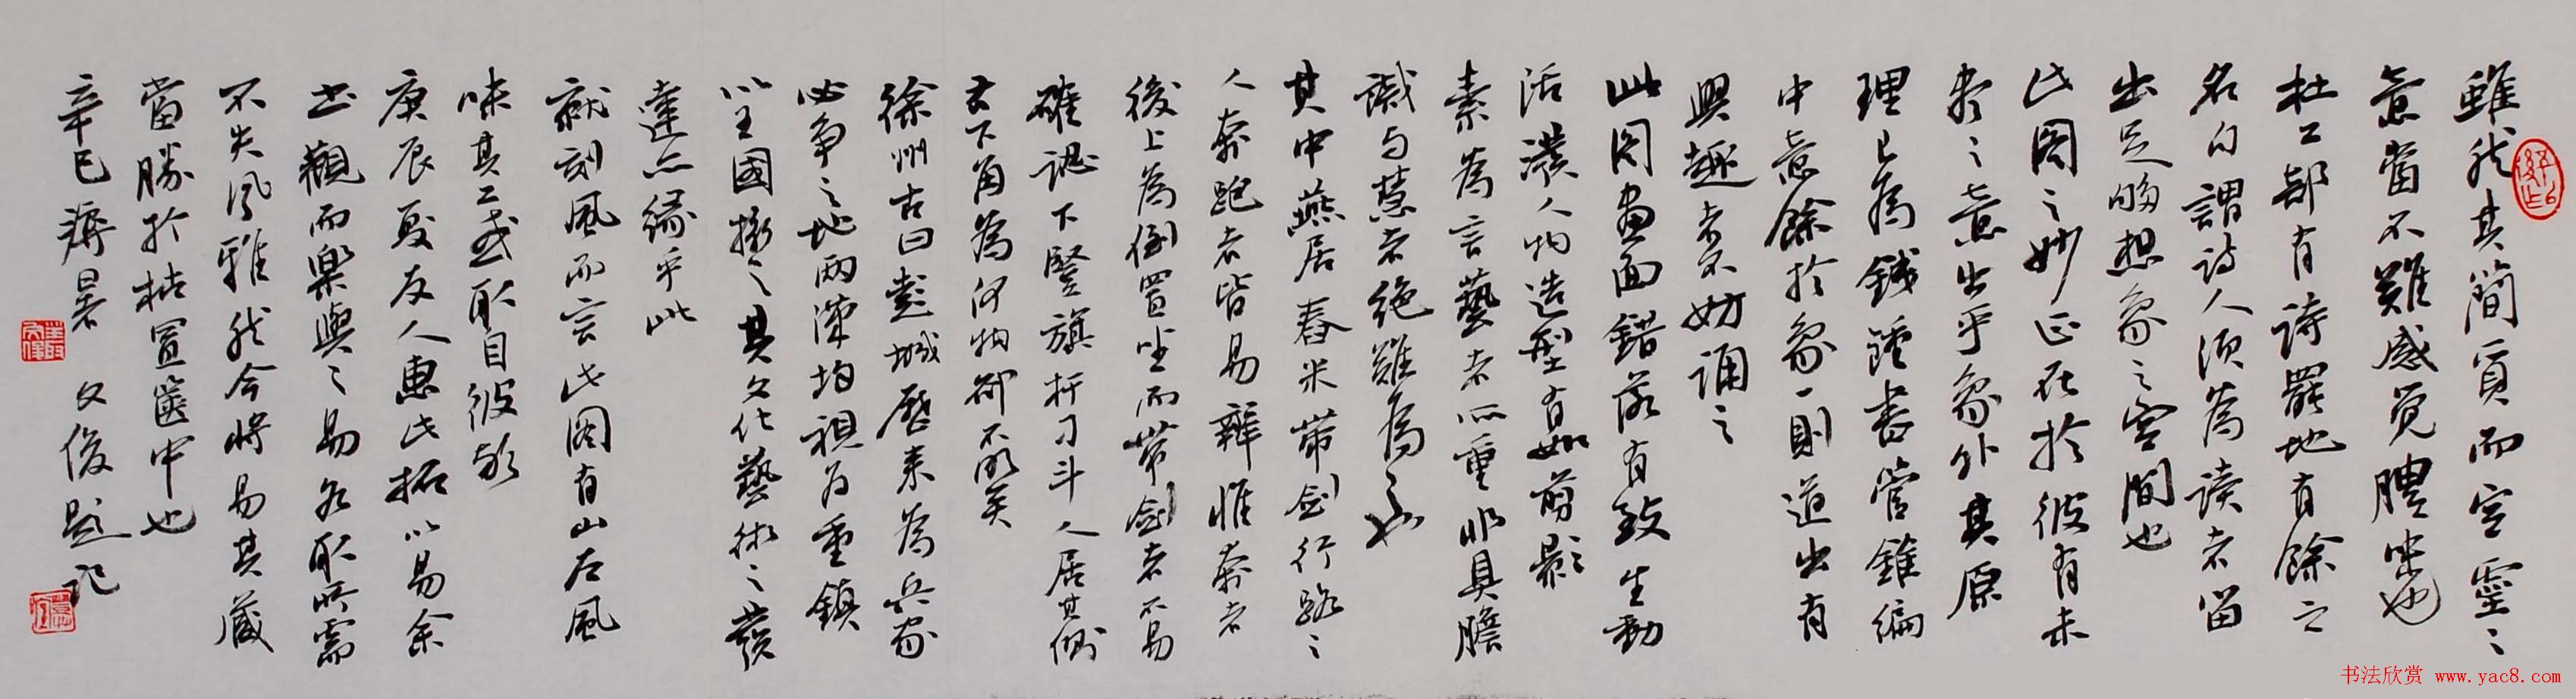 雖然其簡質而空靈之
意當不難感覺體味也
杜工部有詩罷地有餘之
名句謂詩人須為讀者留
出足夠想象之空間也
此圖之妙正在於彼有未
盡之意出乎象外其原
理已為錢鍾書管錐編
中意餘於象一則道出有
興趣者不妨誦之
此圖畫面錯落有致生動
活潑人物造型有如剪影
素為言藝者所重非具膽
識与慧者絕難為之也
其中燕居舂米帶劍行路之
人奔跑者皆易辨惟奔者
後上為倒置坐而帶劍者不易
確認下豎旗杆刁斗人居其側
右下角為何物卻不明矣
徐州古曰彭城歷來為兵家
必爭之地兩漢均視為重鎮
以王國撫之其文化藝術之發
達亦緣乎此
就刻風而言此圖有山左風
味其工或取自彼歟
庚辰夏友人惠此拓以易余
書觀而樂與之易各取所需
不失風雅然今將易其藏
當勝於枯置篋中也
辛巳溽暑 文俊題記
书法欣赏 www.yac8.com